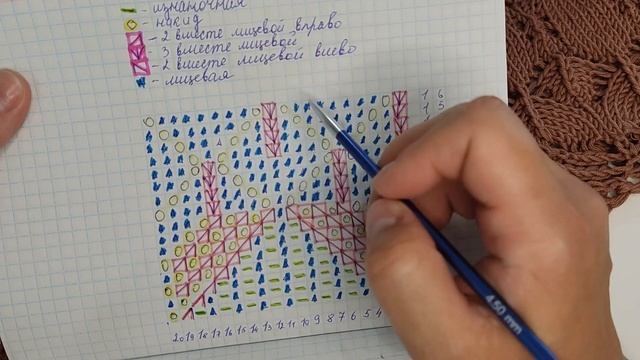 - изнаночная
- накид
- 2 вместе лицевой вправо
- 3 вместе лицевой
- 2 вместе лицевой влево
- лицевая
1 6
1 5
20 19 18 17 16 15 14 13 12 11 10 9 8 7 6 5 4
4.50 mm